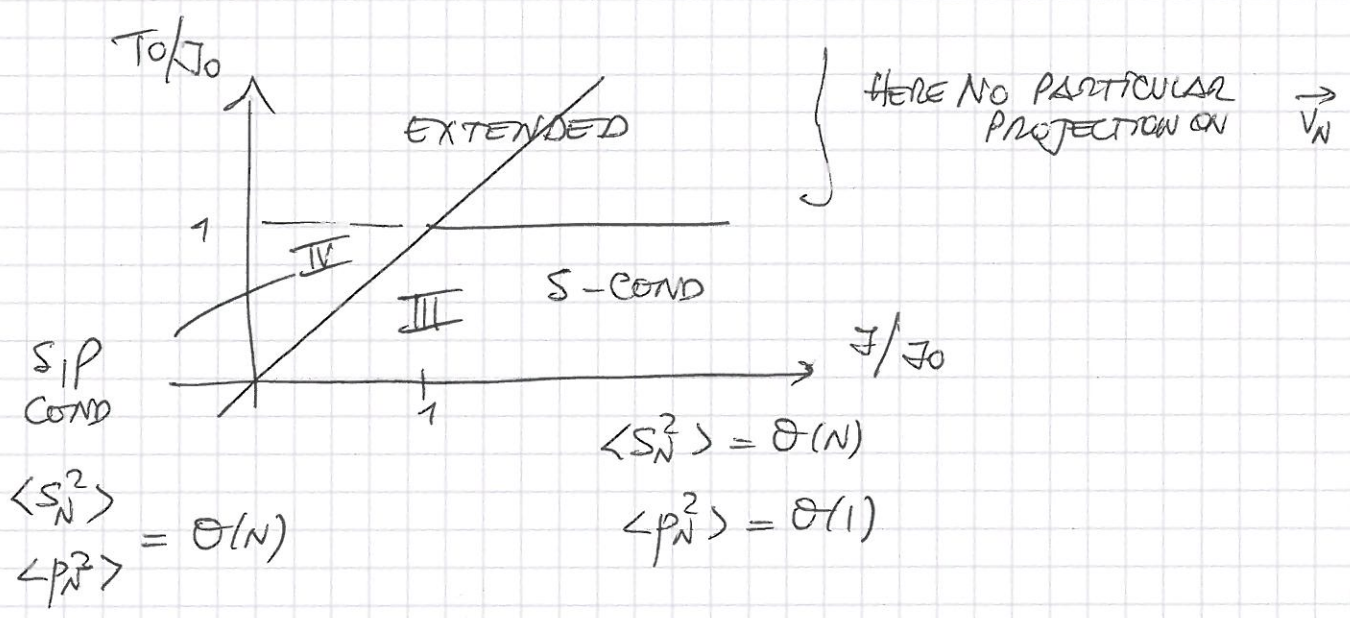 T0/J0
HERE NO PARTICULAR
PROJECTION ON v⃗_N
EXTENDED
1
IV
III
S-COND
J/J0
S,P
COND
1
<S_N^2> = O(N)
<P_N^2> = O(1)
<S_N^2>
<P_N^2> = O(N)